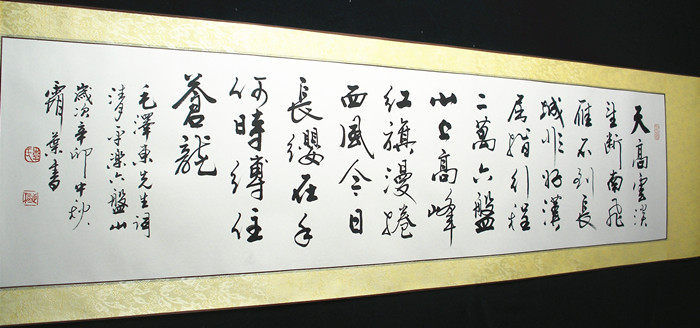 天高雲淡
望斷南飛
雁不到長
城非好漢
屈指行程
二萬六盤
山上高峰
红旗漫捲
西風今日
長纓在手
何時縛住
蒼龍
毛澤東先生詞
清平樂六盤山
歲次辛卯中秋、
霜葉書